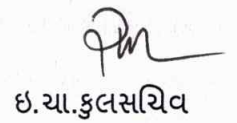 ઇ.ચા.કુલસચિવ